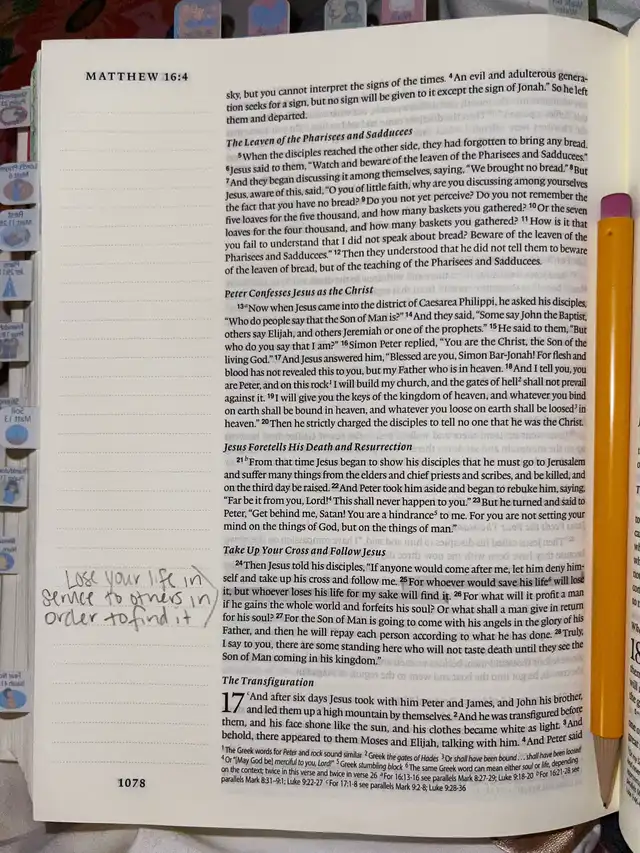 MATTHEW 16:4
sky, but you cannot interpret the signs of the times. ⁴An evil and adulterous genera-
tion seeks for a sign, but no sign will be given to it except the sign of Jonah.” So he left
them and departed.
The Leaven of the Pharisees and Sadducees
⁵When the disciples reached the other side, they had forgotten to bring any bread.
⁶Jesus said to them, “Watch and beware of the leaven of the Pharisees and Sadducees.”
⁷And they began discussing it among themselves, saying, “We brought no bread.” ⁸But
Jesus, aware of this, said, “O you of little faith, why are you discussing among yourselves
the fact that you have no bread? ⁹Do you not yet perceive? Do you not remember the
five loaves for the five thousand, and how many baskets you gathered? ¹⁰Or the seven
loaves for the four thousand, and how many baskets you gathered? ¹¹How is it that
you fail to understand that I did not speak about bread? Beware of the leaven of the
Pharisees and Sadducees.” ¹²Then they understood that he did not tell them to beware
of the leaven of bread, but of the teaching of the Pharisees and Sadducees.
Peter Confesses Jesus as the Christ
¹³ᵃNow when Jesus came into the district of Caesarea Philippi, he asked his disciples,
“Who do people say that the Son of Man is?” ¹⁴And they said, “Some say John the Baptist,
others say Elijah, and others Jeremiah or one of the prophets.” ¹⁵He said to them, “But
who do you say that I am?” ¹⁶Simon Peter replied, “You are the Christ, the Son of the
living God.” ¹⁷And Jesus answered him, “Blessed are you, Simon Bar-Jonah! For flesh and
blood has not revealed this to you, but my Father who is in heaven. ¹⁸And I tell you, you
are Peter, and on this rock¹ I will build my church, and the gates of hell² shall not prevail
against it. ¹⁹I will give you the keys of the kingdom of heaven, and whatever you bind
on earth shall be bound in heaven, and whatever you loose on earth shall be loosed³ in
heaven.” ²⁰Then he strictly charged the disciples to tell no one that he was the Christ.
Jesus Foretells His Death and Resurrection
²¹ᵇFrom that time Jesus began to show his disciples that he must go to Jerusalem
and suffer many things from the elders and chief priests and scribes, and be killed, and
on the third day be raised. ²²And Peter took him aside and began to rebuke him, saying,
“Far be it from you, Lord!⁴ This shall never happen to you.” ²³But he turned and said to
Peter, “Get behind me, Satan! You are a hindrance⁵ to me. For you are not setting your
mind on the things of God, but on the things of man.”
Take Up Your Cross and Follow Jesus
²⁴Then Jesus told his disciples, “If anyone would come after me, let him deny him-
self and take up his cross and follow me. ²⁵For whoever would save his life⁶ will lose
it, but whoever loses his life for my sake will find it. ²⁶For what will it profit a man
if he gains the whole world and forfeits his soul? Or what shall a man give in return
for his soul? ²⁷For the Son of Man is going to come with his angels in the glory of his
Father, and then he will repay each person according to what he has done. ²⁸Truly,
I say to you, there are some standing here who will not taste death until they see the
Son of Man coming in his kingdom.”
Lose your life in
service to others in
order to find it
The Transfiguration
17 ᶜAnd after six days Jesus took with him Peter and James, and John his brother,
and led them up a high mountain by themselves. ²And he was transfigured before
them, and his face shone like the sun, and his clothes became white as light. ³And
behold, there appeared to them Moses and Elijah, talking with him. ⁴And Peter said
¹ The Greek words for Peter and rock sound similar ² Greek the gates of Hades ³ Or shall have been bound . . . shall have been loosed
⁴ Or “[May God be] merciful to you, Lord!” ⁵ Greek stumbling block ⁶ The same Greek word can mean either soul or life, depending
on the context; twice in this verse and twice in verse 26 ᵃ For 16:13-16 see parallels Mark 8:27-29; Luke 9:18-20 ᵇ For 16:21-28 see
parallels Mark 8:31–9:1; Luke 9:22-27 ᶜ For 17:1-8 see parallels Mark 9:2-8; Luke 9:28-36
1078